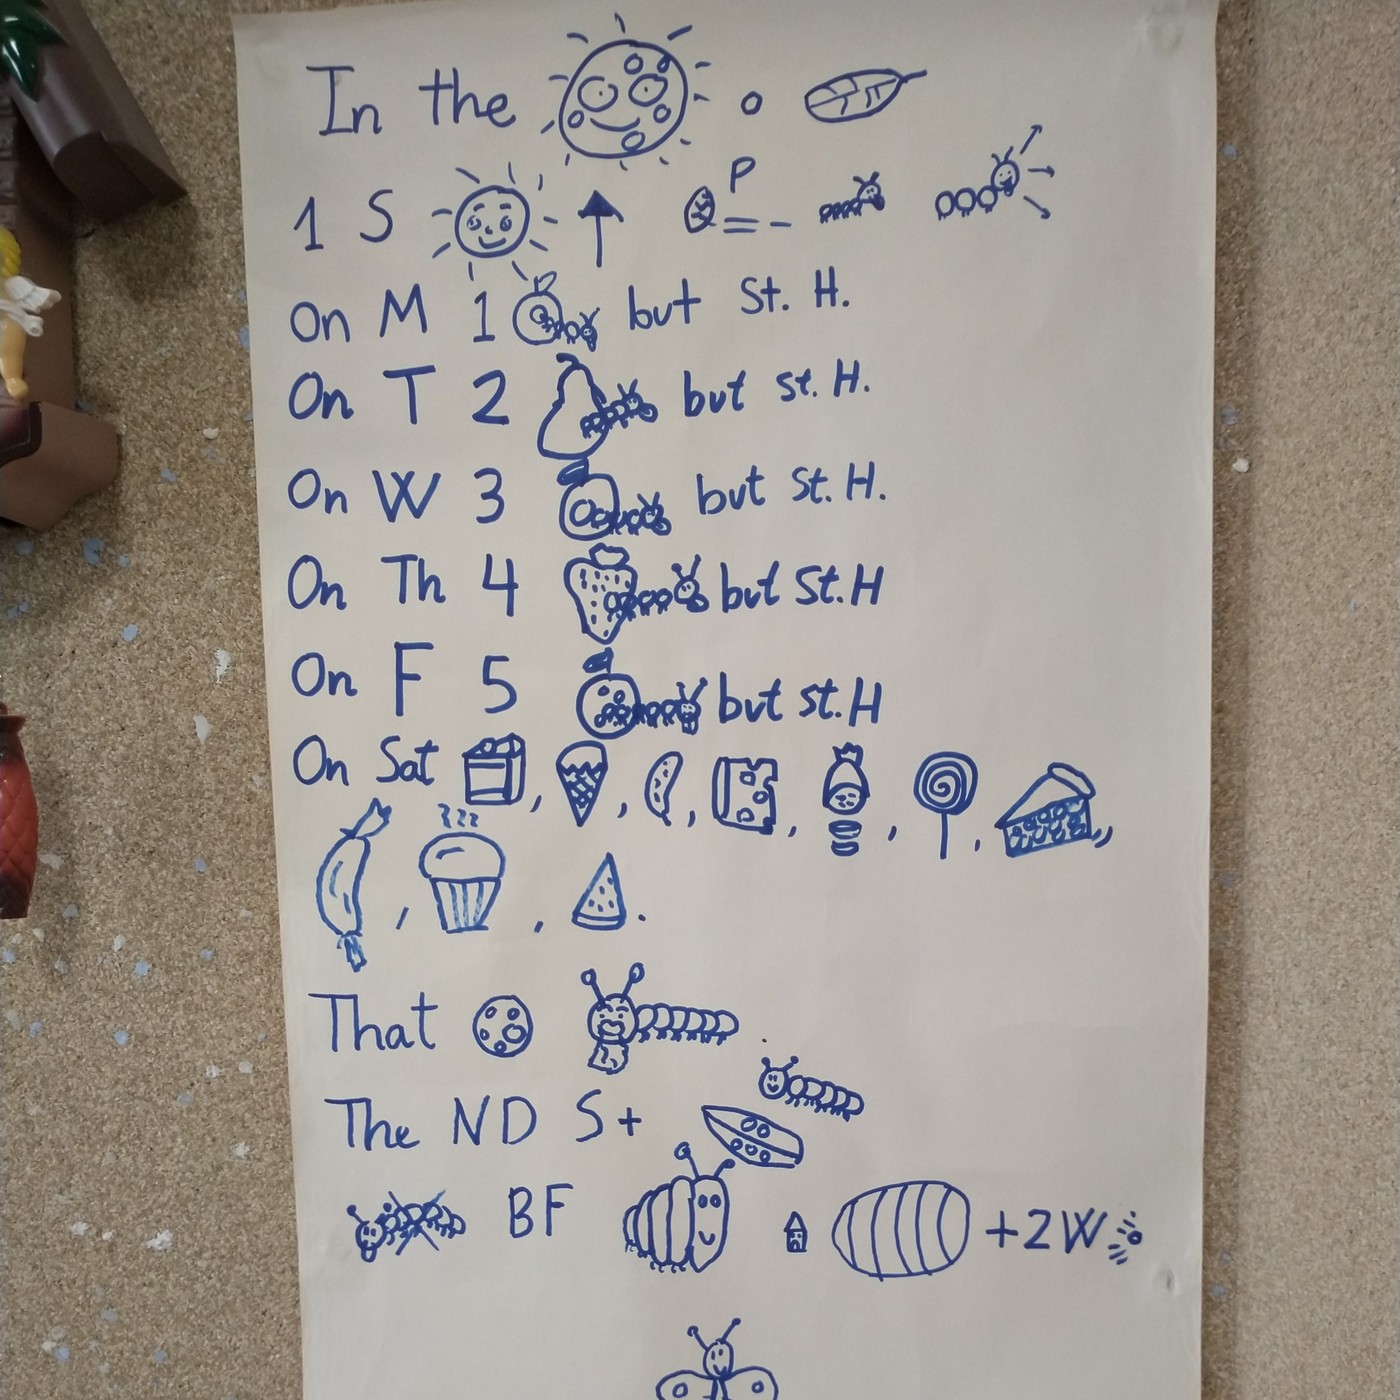 In the
1 S P
On M 1 but St. H.
On T 2 but St. H.
On W 3 but St. H.
On Th 4 but St. H
On F 5 but St. H
On Sat , , , , , ,
, , .
That .
The ND S+
BF +2W